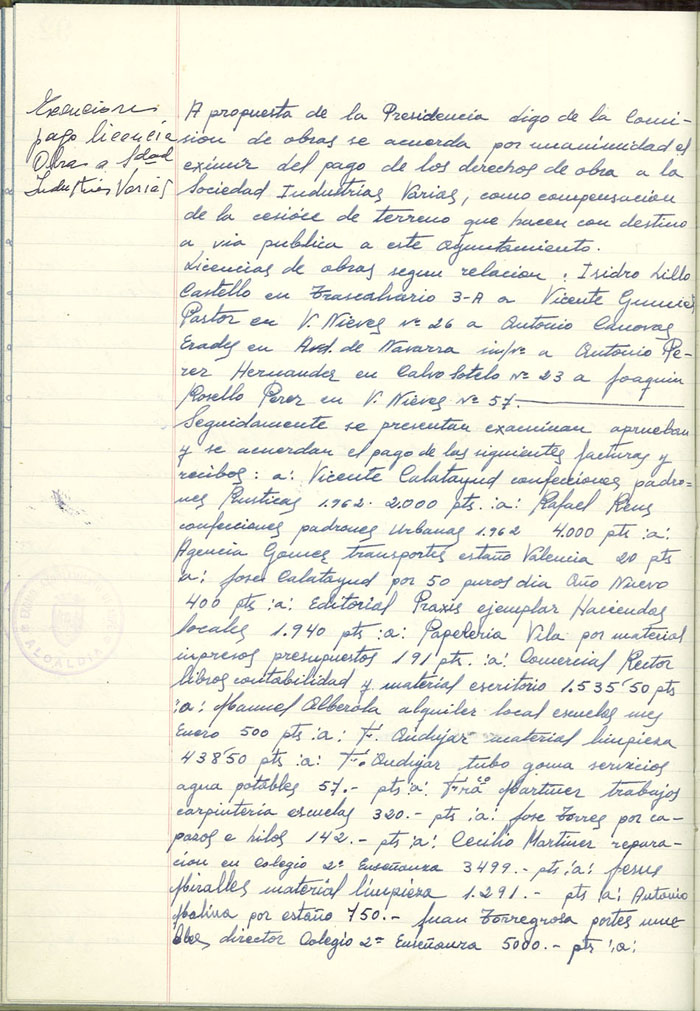 Exenciones
pago licencia
Obras a Sdad
Industrias Varias
A propuesta de la Presidencia digo de la Comi-
sion de obras se acuerda por unanimidad el
eximir del pago de los derechos de obra a la
Sociedad Industrias Varias, como compensacion
de la cesión de terreno que hacen con destino
a via publica a este Ayuntamiento.
Licencias de obras segun relacion : Isidro Lillo
Castello en Trascalvario 3-A a Vicente
Pastor en V. Nieves nº 26 a Antonio Canovas
en Avd. de Navarra a Antonio Pe-
rez Hernandez en Calvo Sotelo nº 23 a Joaquin
Rosello Perez en V. Nieves nº 57.
Seguidamente se presentan examinan aprueban
y se acuerdan el pago de las siguientes facturas y
recibos : a: Vicente Calatayud confecciones padro-
nes Rusticas 1.962. 2.000 pts. :a: Rafael Reus
confecciones padrones Urbanas 1.962 4.000 pts :a:
Agencia Gomez transportes estaño Valencia 20 pts
a: Jose Calatayud por 50 puros dia Año Nuevo
400 pts :a: Editorial Praxis ejemplar Haciendas
locales 1.940 pts :a: Papeleria Vila por material
impresos presupuestos 191 pts. :a: Comercial Rector
libros contabilidad y material escritorio 1.535'50 pts
:a: Manuel Alberola alquiler local escuelas mes
Enero 500 pts :a: Fº. Andujar material limpieza
438'50 pts :a: Fº. Andujar tubo goma servicios
agua potables 57.- pts :a: Martinez trabajos
carpinteria escuelas 320.- pts :a: Jose Torres por ca-
pazos e hilos 142.- pts :a: Cecilio Martinez repara-
cion en Colegio 2ª Enseñanza 3499.- pts :a: Jesus
Miralles material limpieza 1.291.- pts :a: Antonio
Molina por estaño 750.- Juan Torregrosa portes mue-
bles director Colegio 2ª Enseñanza 5000.- pts :a:
ALCALDIA